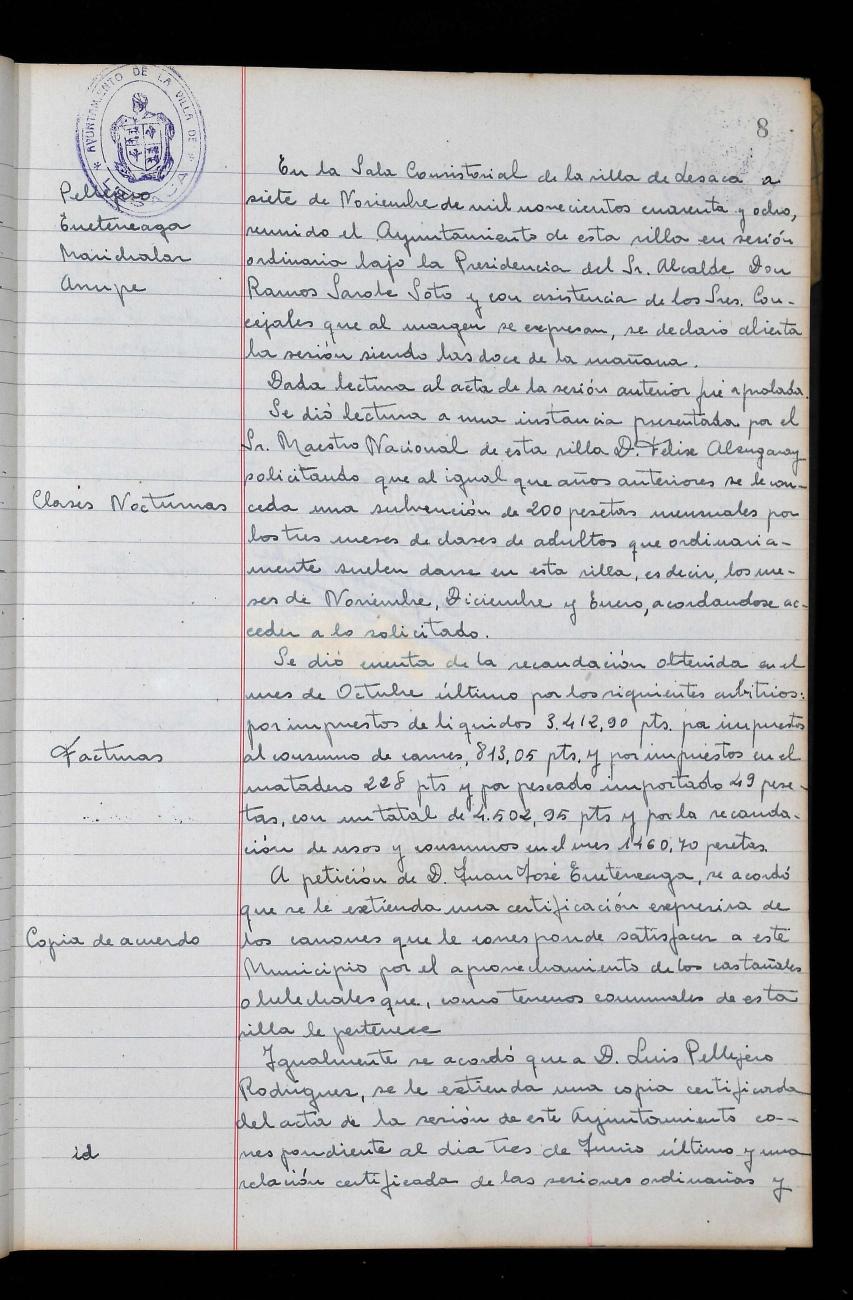 AYUNTAMIENTO DE LA VILLA DE
8
Pellejero
Eneteneaga
Marichalar
Arrupe
En la Sala Consistorial de la villa de Lesaca a
siete de Noviembre de mil novecientos cuarenta y ocho,
reunido el Ayuntamiento de esta villa en sesión
ordinaria bajo la Presidencia del Sr. Alcalde Don
Ramos Sarobe Soto y con asistencia de los Sres. Con-
cejales que al margen se expresan, se declaró abierta
la sesión siendo las doce de la mañana.
Dada lectura al acta de la sesión anterior fué aprobada.
Se dió lectura a una instancia presentada por el
Sr. Maestro Nacional de esta villa D. Felix Alzugaray
solicitando que al igual que años anteriores se le con-
Clases Nocturnas
ceda una subvención de 200 pesetas mensuales por
los tres meses de clases de adultos que ordinaria-
mente suelen darse en esta villa, es decir, los me-
ses de Noviembre, Diciembre y Enero, acordandose ac-
ceder a lo solicitado.
Se dió cuenta de la recaudación obtenida en el
mes de Octubre último por los siguientes arbitrios:
por impuestos de liquidos 3.412,90 pts. por impuestos
Facturas
al consumo de carnes, 813,05 pts. y por impuestos en el
matadero 228 pts y por pescado importado 49 pese-
tas, con un total de 4.502,95 pts y por la recauda-
ción de usos y consumos en el mes 1460,70 pesetas.
A petición de D. Juan José Eneteneaga, se acordó
que se le extienda una certificación expresiva de
Copia de acuerdo
los canones que le corresponde satisfacer a este
Municipio por el aprovechamiento de los castañales
o helechales que, como terrenos comunales de esta
villa le pertenece
Igualmente se acordó que a D. Luis Pellejero
Rodriguez, se le extienda una copia certificada
del acta de la sesión de este Ayuntamiento co-
id
rrespondiente al dia tres de Junio último y una
relación certificada de las sesiones ordinarias y